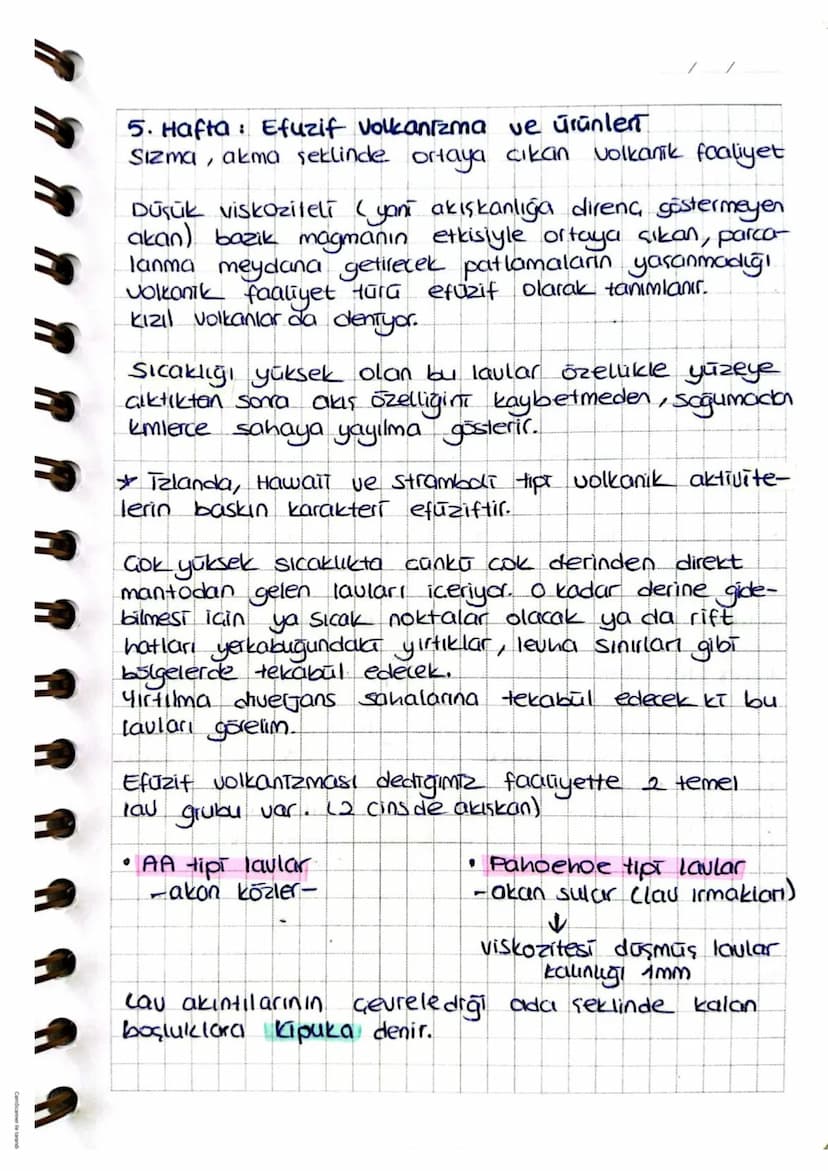 / /
5. Hafta : Efuzif Volkanizma ve ürünleri
Sızma, akma şeklinde ortaya çıkan volkanik faaliyet
Düşük viskoziteli (yani akışkanlığa direnç göstermeyen
akan) bazik magmanın etkisiyle ortaya çıkan, parça-
lanma meydana getirecek patlamaların yaşanmadığı
volkanik faaliyet türü efüzif olarak tanımlanır.
Kızıl volkanlar da deniyor.
Sıcaklığı yüksek olan bu lavlar özellikle yüzeye
çıktıktan sonra akış özelliğini kaybetmeden, soğumadan
kmlerce sahaya yayılma gösterir.
* İzlanda, Hawaii ve Stramboli tipi volkanik aktivite-
lerin baskın karakteri efüziftir.
Çok yüksek sıcaklıkta çünkü çok derinden direkt
mantodan gelen lavları içeriyor. O kadar derine gide-
bilmesi için ya sıcak noktalar olacak ya da rift
hatları yerkabuğundaki yırtıklar, levha sınırları gibi
bölgelerde tekabül edecek.
Yırtılma diverjans sahalarına tekabül edecek ki bu
lavları görelim.
Efüzif volkanizması dediğimiz faaliyette 2 temel
lav grubu var. (2 cins de akışkan)
• AA tipi lavlar
-akan közler-
• Pahoehoe tipi lavlar
-akan sular (lav ırmakları)
↓
viskozitesi düşmüş lavlar
kalınlığı 1mm
Lav akıntılarının çevrelediği ada şeklinde kalan
boşluklara Kipuka denir.
CamScanner ile tarandı